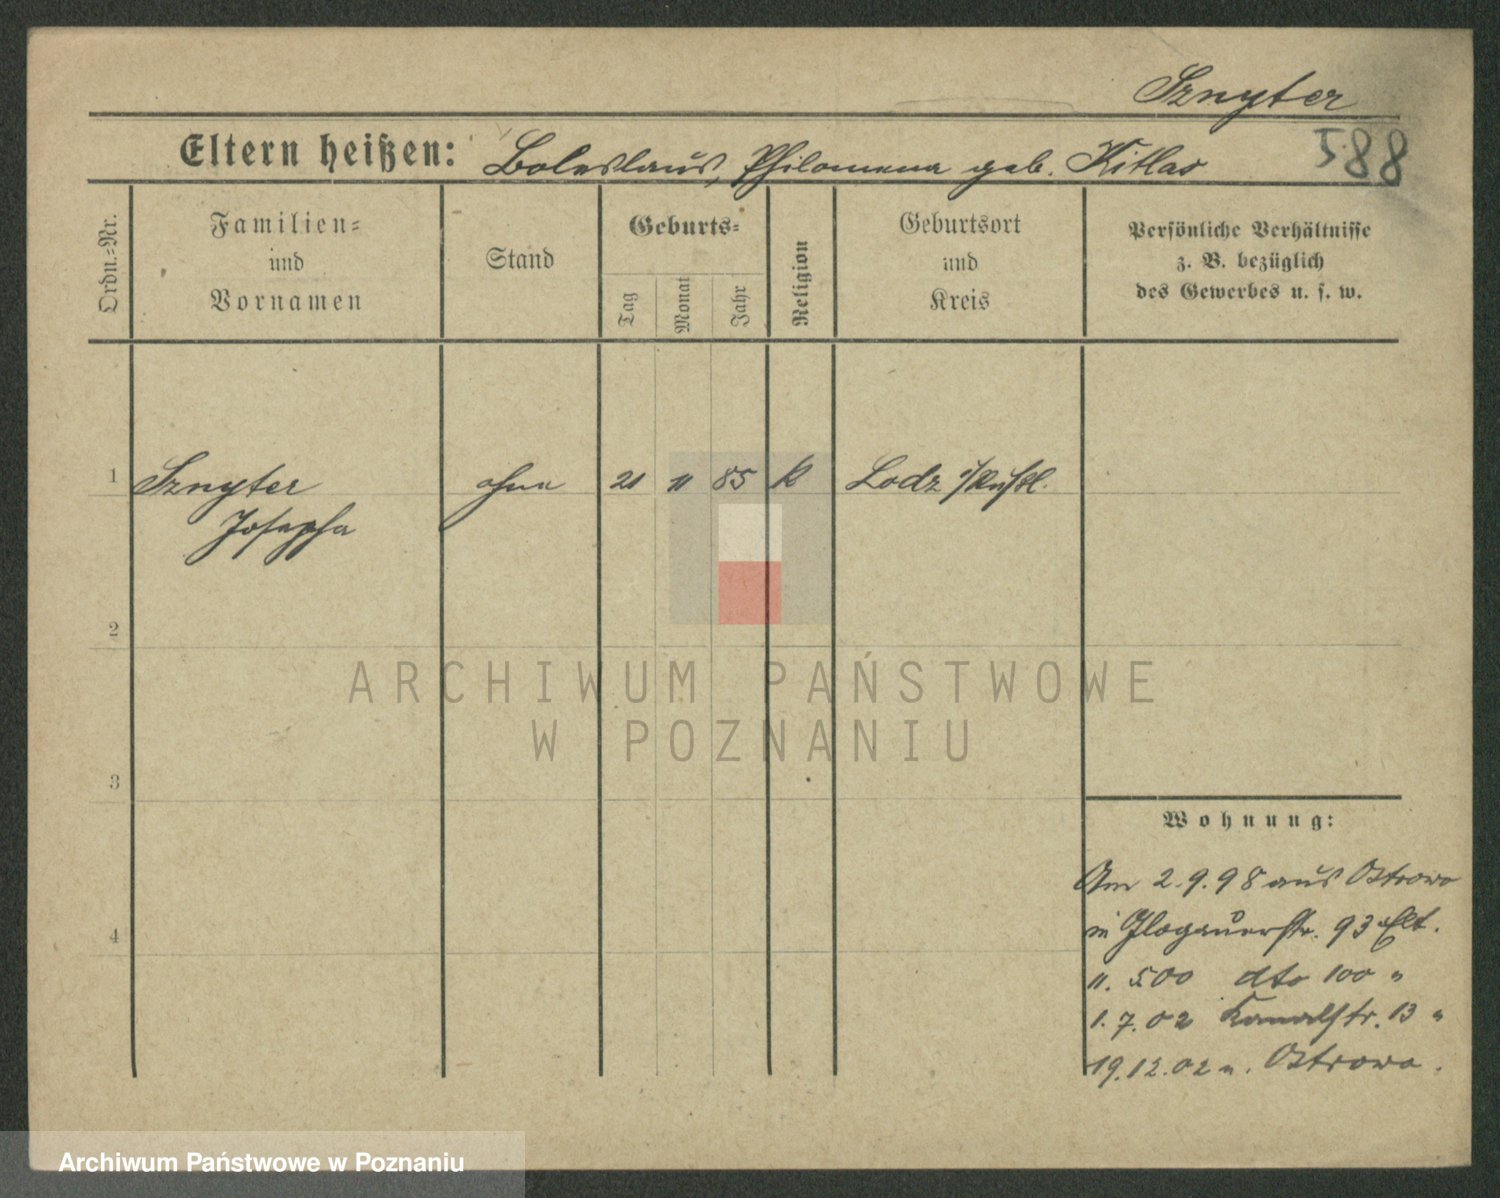 Sznyter
588
Eltern heißen: Boleslaus, Philomena geb. Kitlas
Ordn.-Nr.
Familien-
und
Vornamen
Stand
Geburts-
Tag
Monat
Jahr
Religion
Geburtsort
und
Kreis
Persönliche Verhältnisse
z. B. bezüglich
des Gewerbes u. s. w.
1 Sznyter ohne 21 11 85 k Lodz i/Rußl.
Josepha
2
3
4
Wohnung:
Am 2.9.98 aus Ostrowo
in Glogauerstr. 93 Elt.
11. 5.00 dto 100 "
1.7.02 Kanalstr. 13 "
19.12.02 n. Ostrowo.
ARCHIWUM PAŃSTWOWE
W POZNANIU
Archiwum Państwowe w Poznaniu